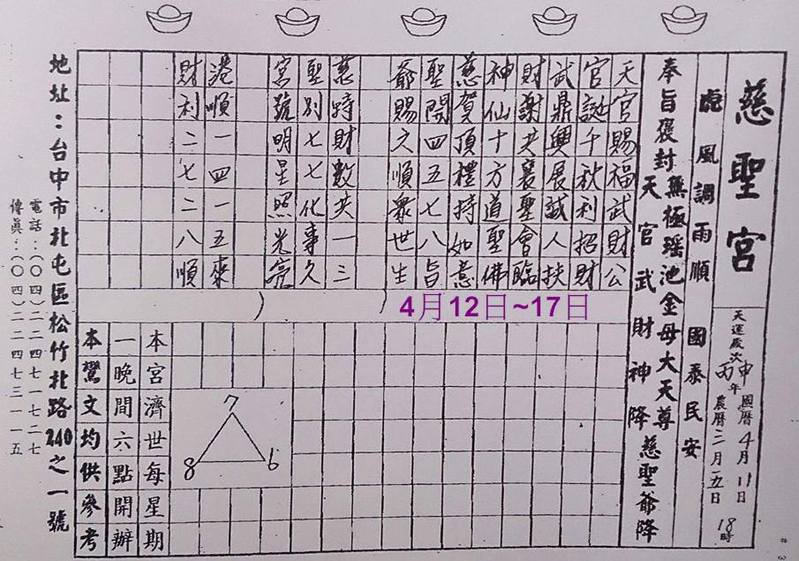 慈聖宮
天運歲次丙申年 國曆4月11日 農曆三月五日 18時
風調雨順 國泰民安
奉旨褒封無極瑤池金母大天尊 慈聖爺降
天官武財神降
天官賜福武財公
官誕千秋利招財
武鼎興展誠人扶
財謝共襄聖會臨
神仙十方道聖佛
慈賀頂禮持如意
聖開四五七八旨
爺賜六順眾世生
慈特財數共一三
聖別七七化事久
宮號明星照光亮
港順一四一五來
財利二七二八順
4月12日~17日
7
8 6
本宮濟世每星期
一晚間六點開辦
本鸞文均供參考
地址：台中市北屯區松竹北路240之一號
電話：(〇四)二二四七一七二七
傳眞：(〇四)二二四七三一一五